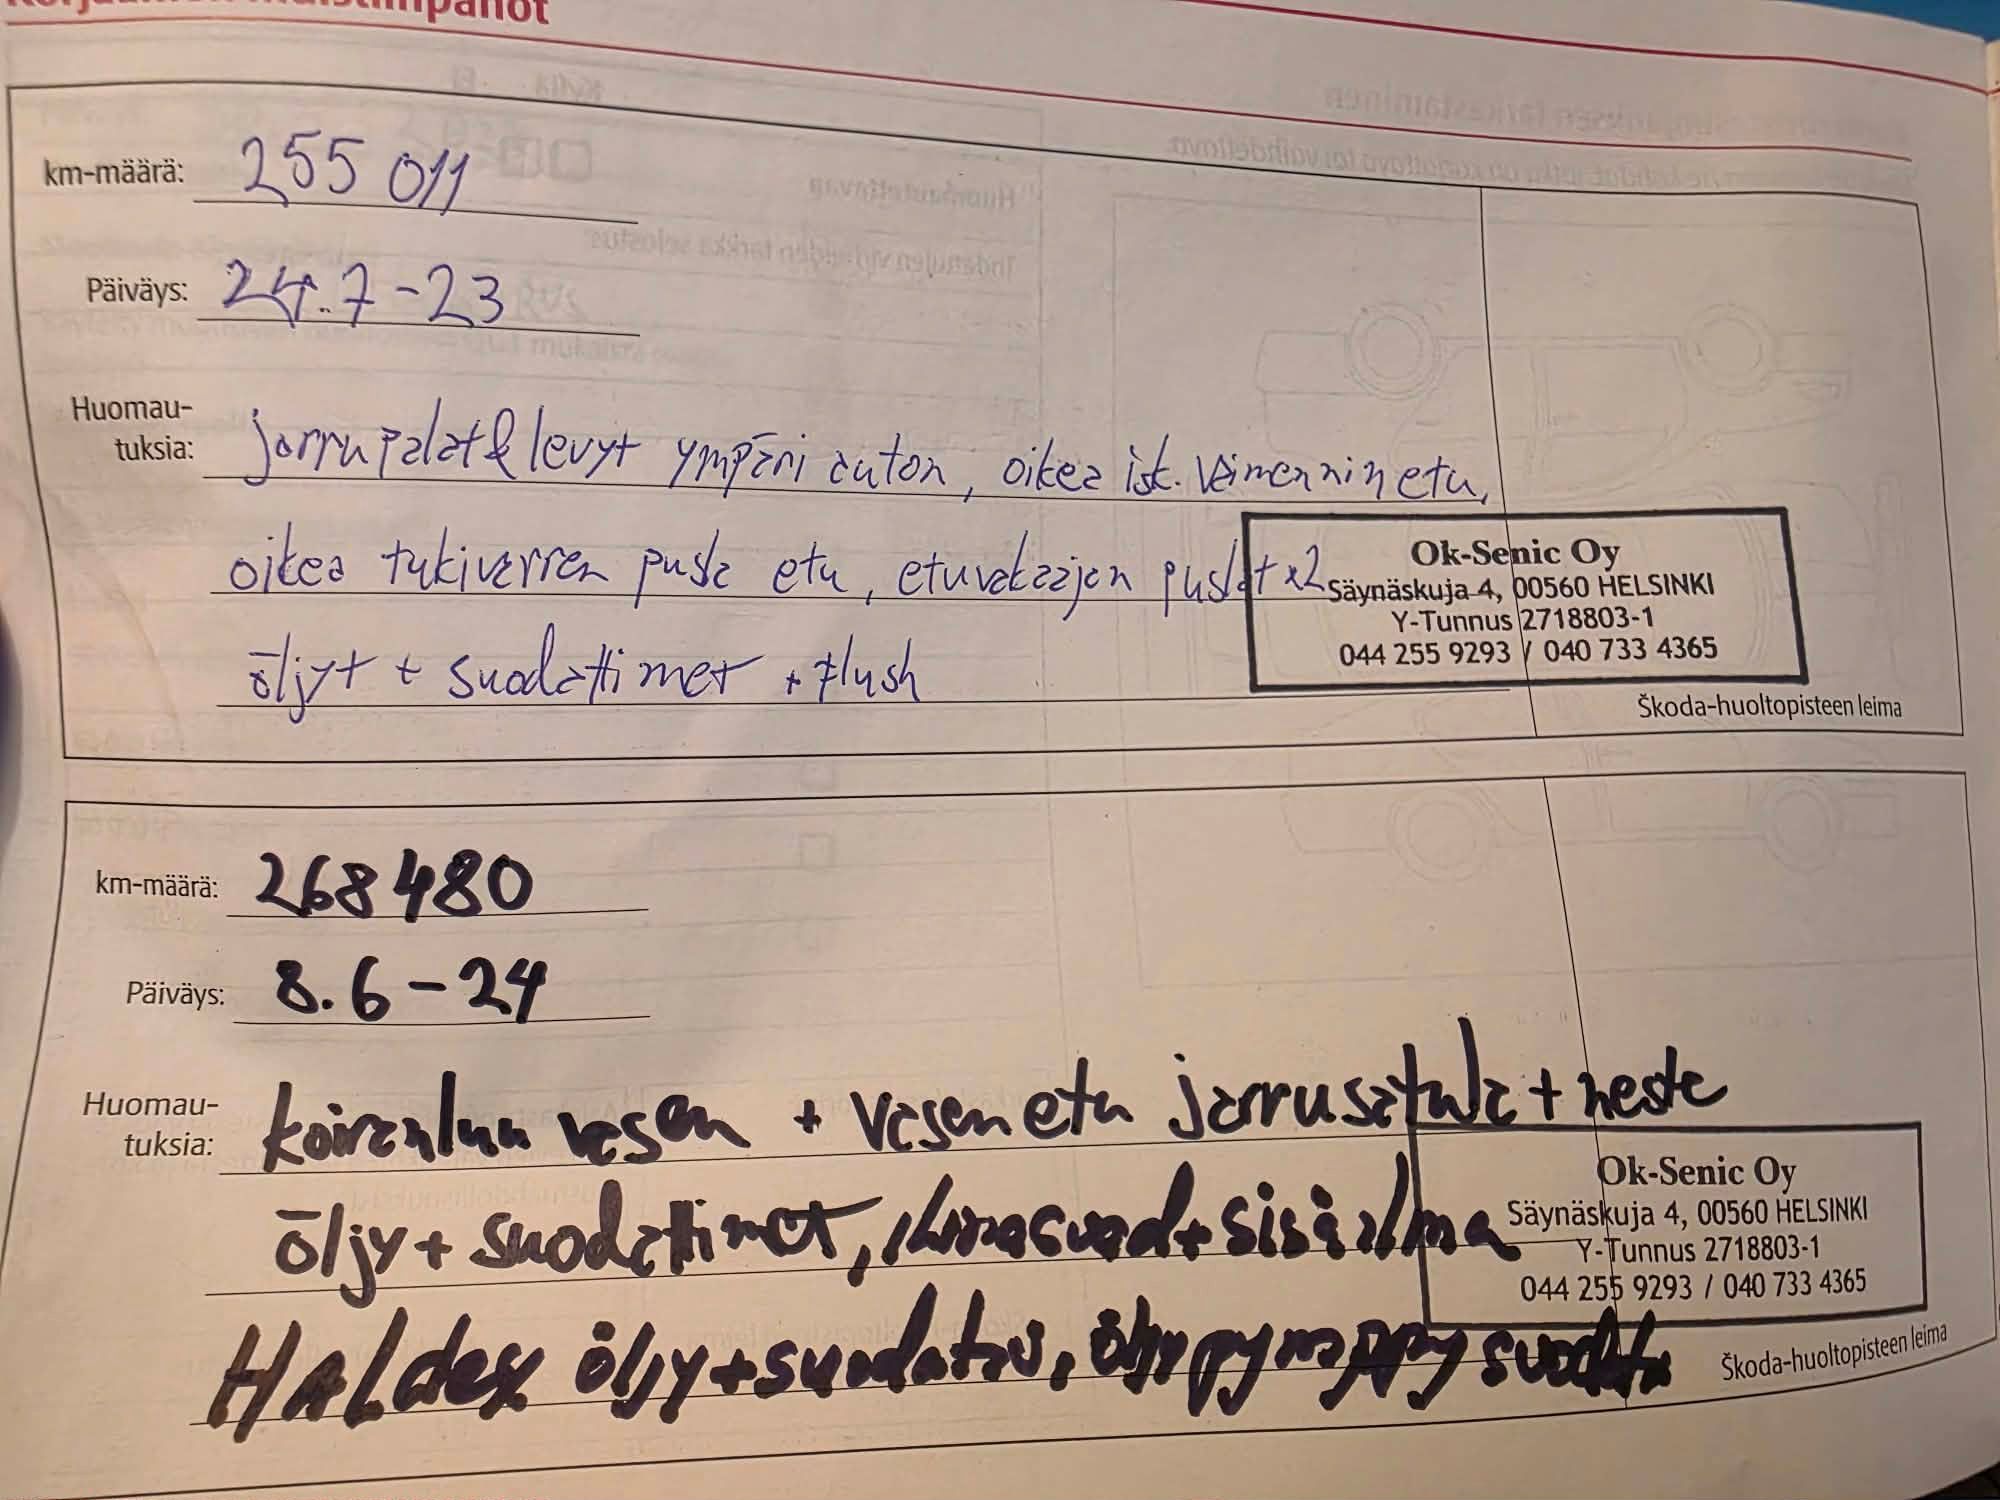 Korjaamon muistiinpanot
km-määrä: 255 011
Päiväys: 24.7-23
Huomau-
tuksia: jarrupalat & levyt ympäri auton, oikea isk. vaimennin etu,
oikea tukivarren pusla etu, etuvakaajan puslat x2
öljyt + suodattimet + flush
Ok-Senic Oy
Säynäskuja 4, 00560 HELSINKI
Y-Tunnus 2718803-1
044 255 9293 / 040 733 4365
Škoda-huoltopisteen leima
km-määrä: 268480
Päiväys: 8.6-24
Huomau-
tuksia: koiranluu vasen + vasen etu jarrusatula + neste
öljy + suodattimet, + sisäilma
Ok-Senic Oy
Säynäskuja 4, 00560 HELSINKI
Y-Tunnus 2718803-1
044 255 9293 / 040 733 4365
HALdex öljy + suodatus,
Škoda-huoltopisteen leima